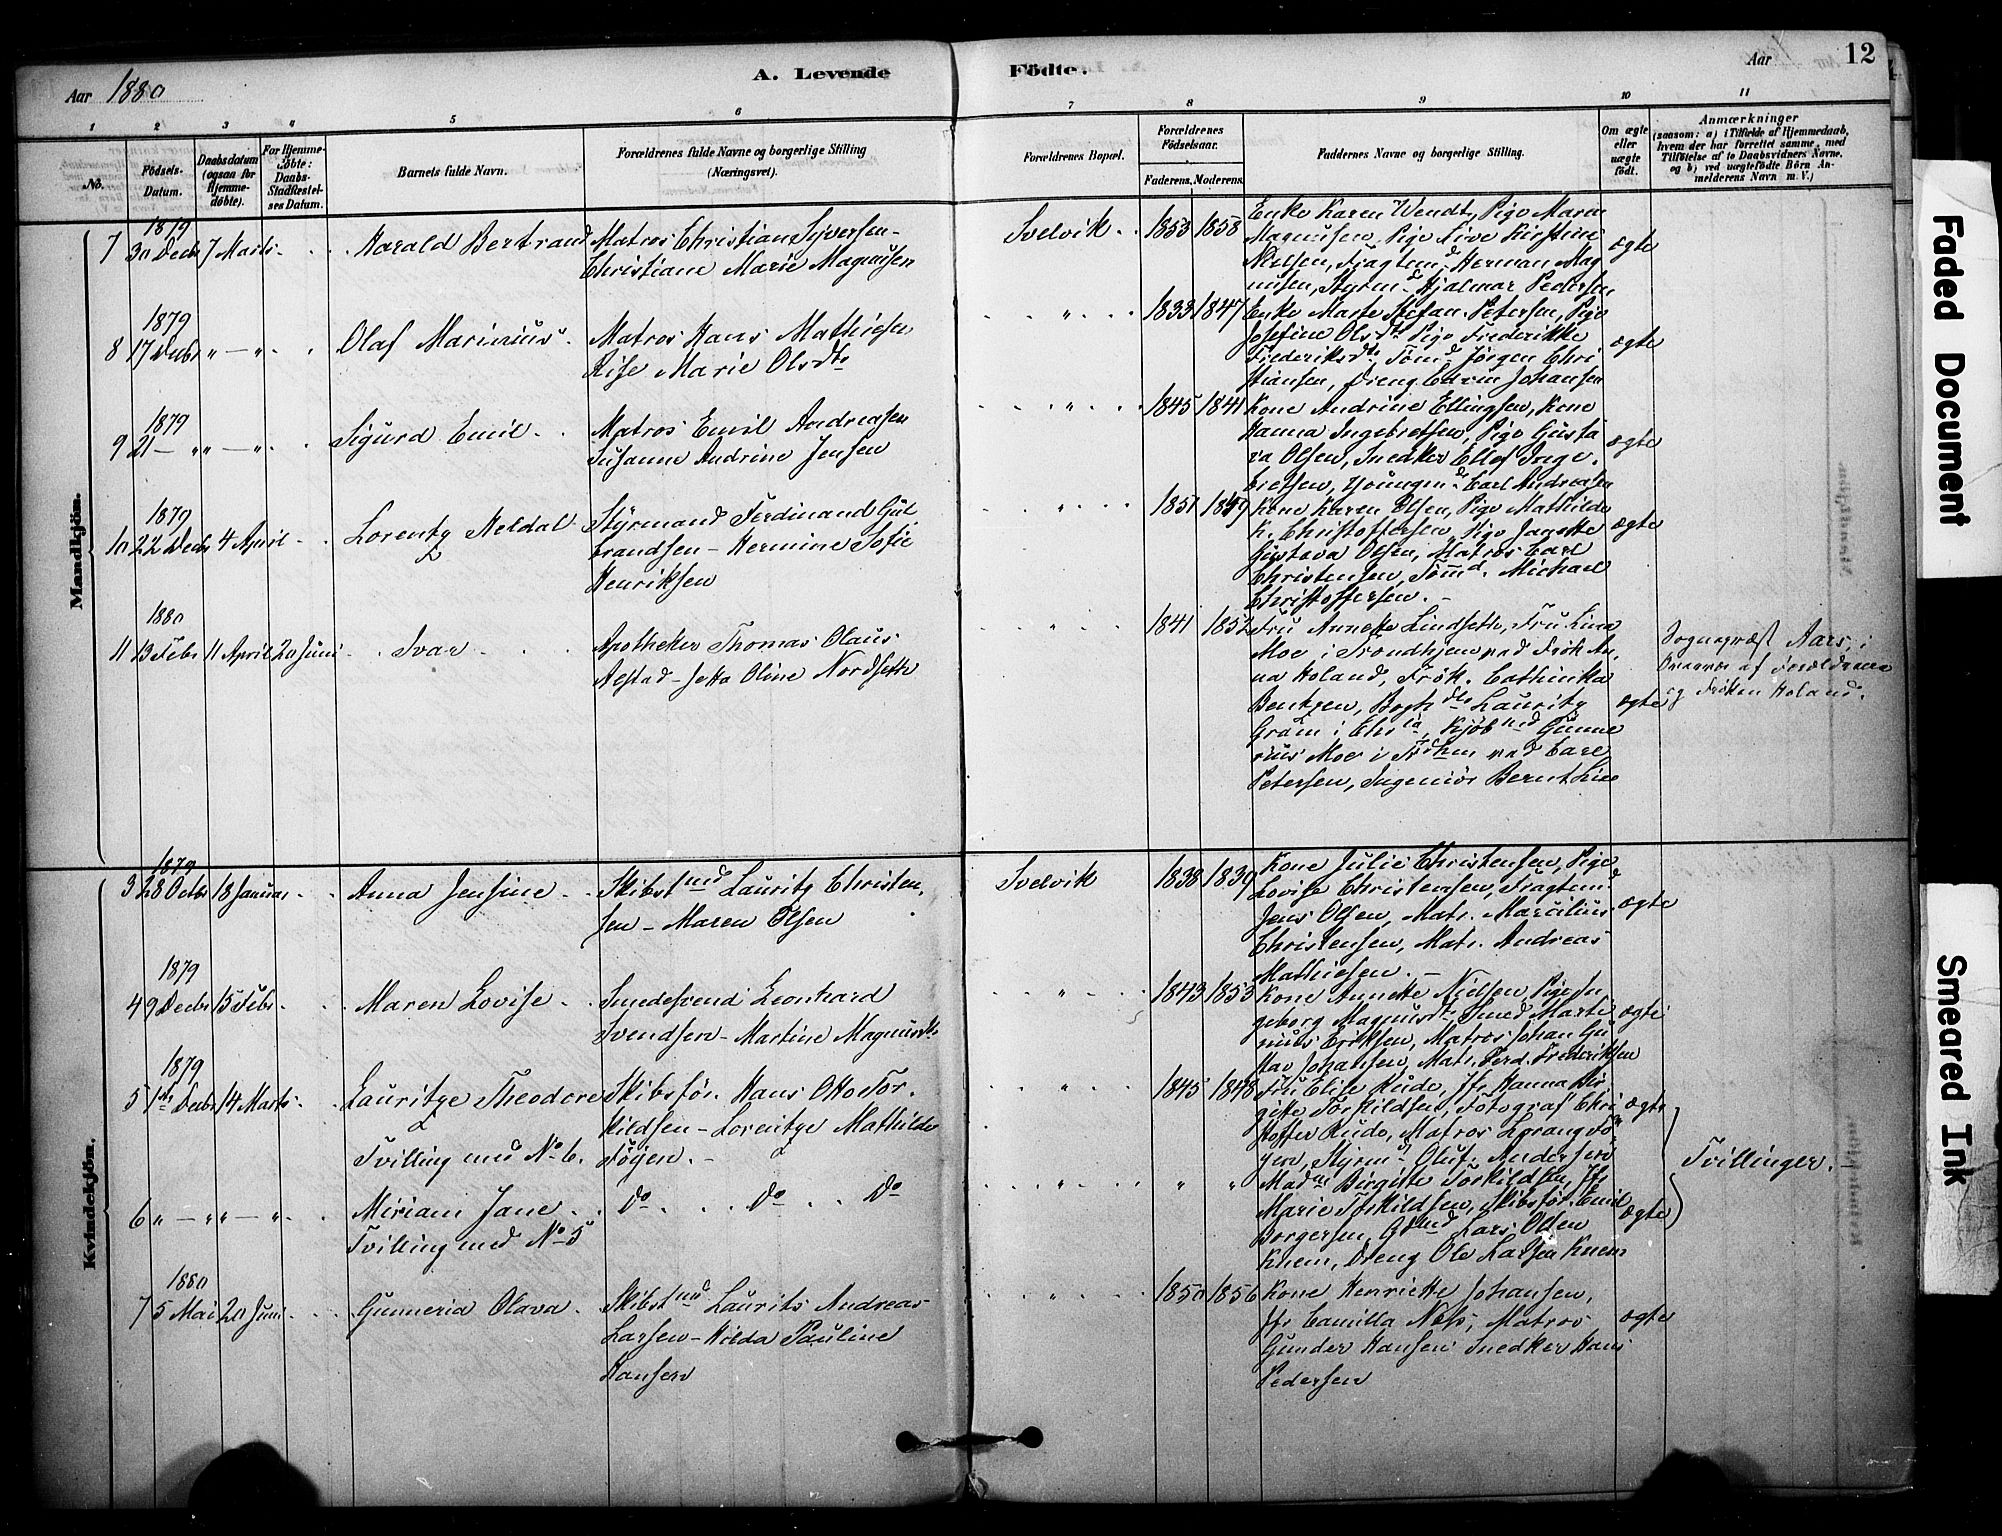 Aar 1880
A. Levende Födte.
Aar
12
1 2 3 4 5 6 7 8 9 10 11
No.
Födsels-Datum.
Daabsdatum (ogsaa for Hjemme-döbte).
For Hjemme-döbte: Daabs-Stadfæstel-ses Datum.
Barnets fulde Navn.
Forældrenes fulde Navne og borgerlige Stilling (Næringsvei).
Forældrenes Bopæl.
Forældrenes Födselsaar.
Faderens. Moderens.
Faddernes Navne og borgerlige Stilling.
Om ægte eller uægte födt.
Anmærkninger
(saasom: a) i Tilfælde af Hjemmedaab, hvem der har forrettet samme, med Tilföielse af to Daabsvidners Navne, og b) ved uægtefödte Börn An-melderens Navn m. V.)
Mandkjön.
7 1879 30 Decbr 7 Marts Harald Bertrand
Matros Christian Syversen -
Christiane Marie Magnusen
Svelvik 1853 1858
Enke Karen Wendt, Pige Maren
Magnusen, Pige Live Kirstine
Nielsen, Fragtmd Herman Mag
nusen, Styrmd Hjalmar Pedersen
ægte
8 1879 17 Decbr " — " Olaf Marinius
Matros Hans Mathisen
Rise Marie Olsdtr
" 1833 1847
Enke Marte Stefan. Petersen, Pige
Josefine Olsdtr Pige Frederikke
Frederiksdtr, Tömd Jörgen Chri
stiansen, Dreng Edvin Johansen
ægte
9 1879 21 — " " — " Sigurd Emil
Matros Emil Andreasen
Susanne Andrine Jensen
" 1845 1841
Kone Andrine Ellingsen, Kone
Hanna Ingebretsen, Pige Gusta
va Olsen, Snedker Ellef Inge
bretsen, Youngmd Carl Andreasen
ægte
10 1879 22 Decbr 4 April Lorentz Meldal
Styrmand Ferdinand Gul
brandsen - Hermine Sofie
Henriksen
" 1851 1859
Kone Karen Olsen, Pige Mathilde
K. Christoffersen, Pige Janette
Gustava Olsen, Matros Carl
Christensen, Tömd. Michael
Christoffersen. -
ægte
11 1880 13 Febr 11 April 20 Juni Ivar
Apotheker Thomas Olaus
Aestad - Jetta Oline Nordseth
" 1841 1852
Fru Annette Lindseth, Fru Lina
Moe i Trondhjem ved Frök An
na Holand, Frök. Cathinka
Bentzen, Boghdlr Lauritz
Gram i Chria, Kjöbmd Gunne
rius Moe i Trhm ved Carl
Petersen, Ingeniör Bernt Lie
ægte
Sognepræst Aars, i
Overvær af Forældrene
og Fröken Holand.
Kvindekjön.
3 1879 28 Octbr 18 Januar Anna Jensine
Skibstmd Lauritz Christen
sen - Maren Olsen
Svelvik 1838 1839
Kone Julie Christensen, Pige
Lovise Christensen, Fragtmd
Jens Olsen, Matr. Marcilius
Christensen, Matr. Andreas
Mathisen. -
ægte
4 1879 9 Decbr 15 Febr Maren Lovise
Smedesvend Leonhard
Svendsen - Martine Magnusdtr
" 1843 1853
Kone Annette Nielsen, Pige In
geborg Magnusdtr Smed Marti
nius Eriksen, Matros Johan Gu
stav Johansen, Matr. Ferd. Frederiksen
ægte
5 1879 1ste Decbr 14 Marts Lauritze Theodore
Tvilling med No 6.
Skibsför. Hans Otto Tor
kildsen - Lorentze Mathilde
Föyen. -
" 1845 1848
Fru Elise Rude, Jfr Hanna Bir
gitte Torkildsen, Fotograf Chri
stoffer Rude, Matros Lorang Fö
yen, Styrmd Oluf Andersen
ægte
Tvillinger.
6 " — " " — " Miriam Jane
Tvilling med No 5
Do Do Do
" " "
Madm Birgitte Torkildsen, Jfr
Marie Torkildsen, Skibsför. Emil
Borgersen, Gbmd Lars Olsen
Knem, Dreng Ole Larsen Knem
ægte
7 1880 5 Mai 20 Juni Gunneria Olava
Skibstmd Laurits Andreas
Larsen - Hilda Pauline
Hansen
" 1850 1856
Kone Henriette Johansen,
Jfr Camilla Næss, Matros
Gunder Hansen Snedker Hans
Pedersen
ægte
Faded Document
Smeared Ink